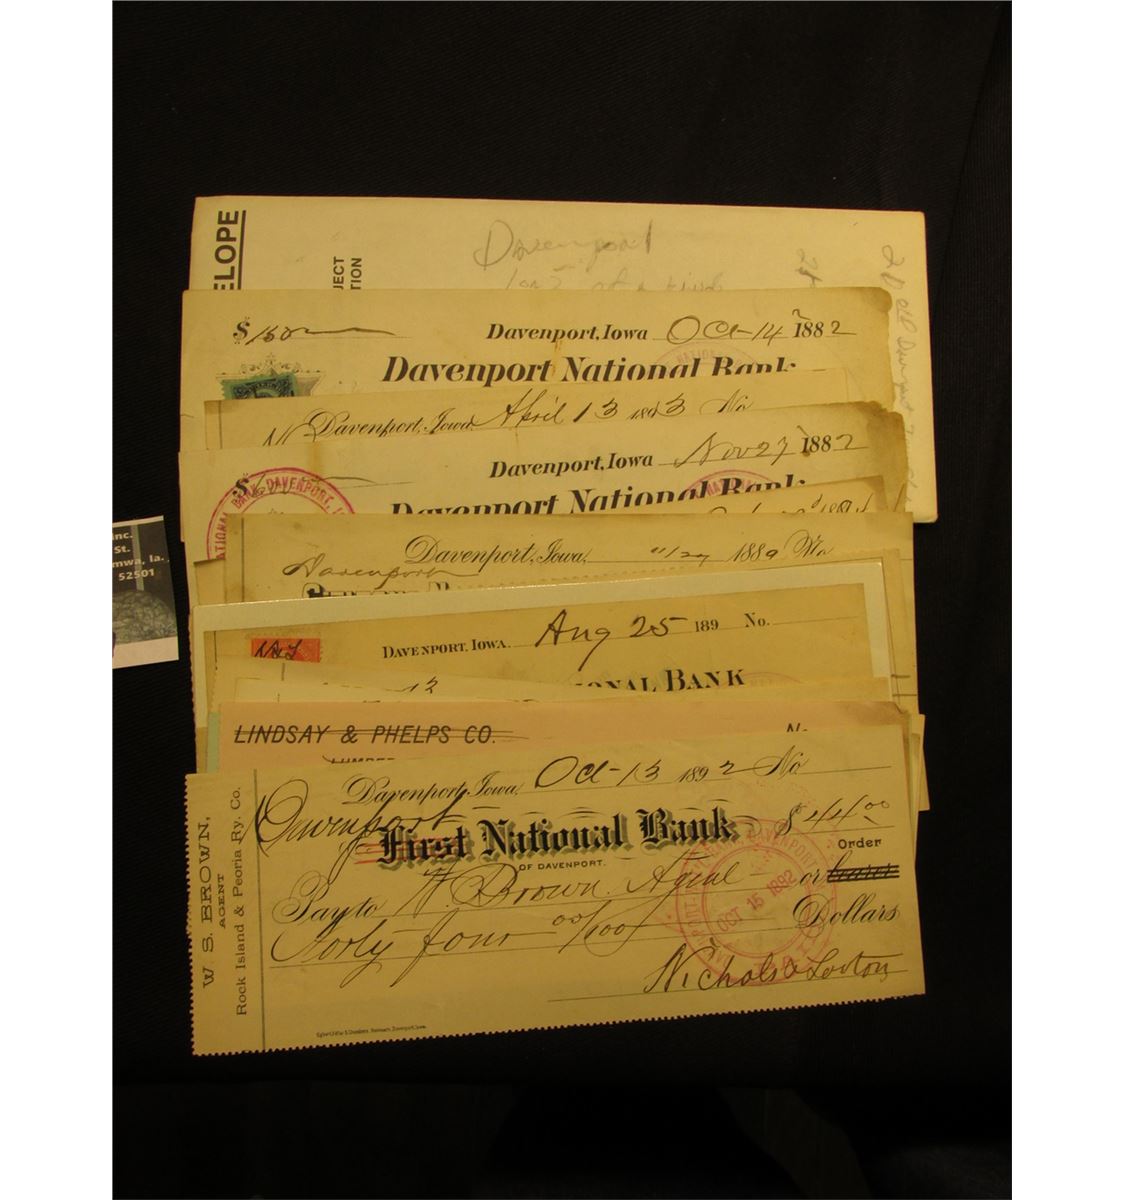 ELOPE
JECT
TION
Davenport
20 Old Davenport
$ 150
Davenport, Iowa Oct 14 1882
Davenport National Bank
Davenport, Iowa April 13 1893 No
Davenport, Iowa Nov 27 1882
NATIONAL BANK DAVENPORT, I
Davenport National Bank
Davenport, Iowa, 11/27 1889 No
Davenport
inc.
St.
mwa, Ia.
52501
DAVENPORT, IOWA. Aug 25 189 No.
ONAL BANK
13
LINDSAY & PHELPS CO.
LUMBER
No
Davenport, Iowa, Oct 13 1892 No
Davenport
First National Bank $ 44 00
OF DAVENPORT.
Order
Pay to W. Brown. Agent or bearer
Forty four 00/100 Dollars
OCT 15 1892
Nichols & Lorton
W. S. BROWN,
AGENT
Rock Island & Peoria Ry. Co.